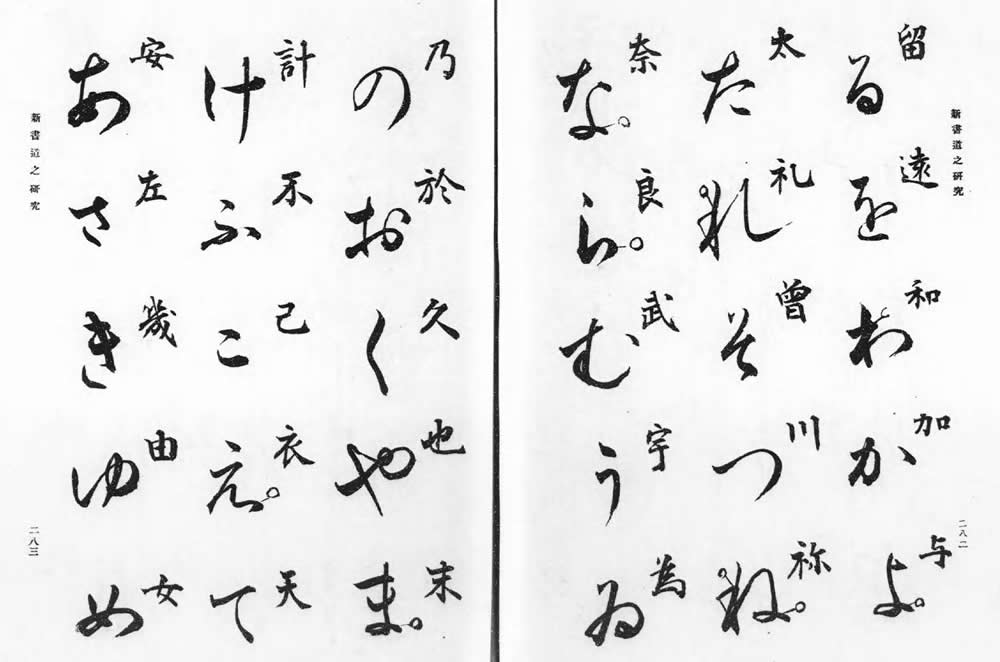 新書道之研究
二八二
留遠和加与
るをわかよ
太礼曾川祢
たれそつね
奈良武宇為
ならむうゐ
乃於久也末
のおくやま
計不己衣天
けふこえて
安左幾由女
あさきゆめ
新書道之研究
二八三